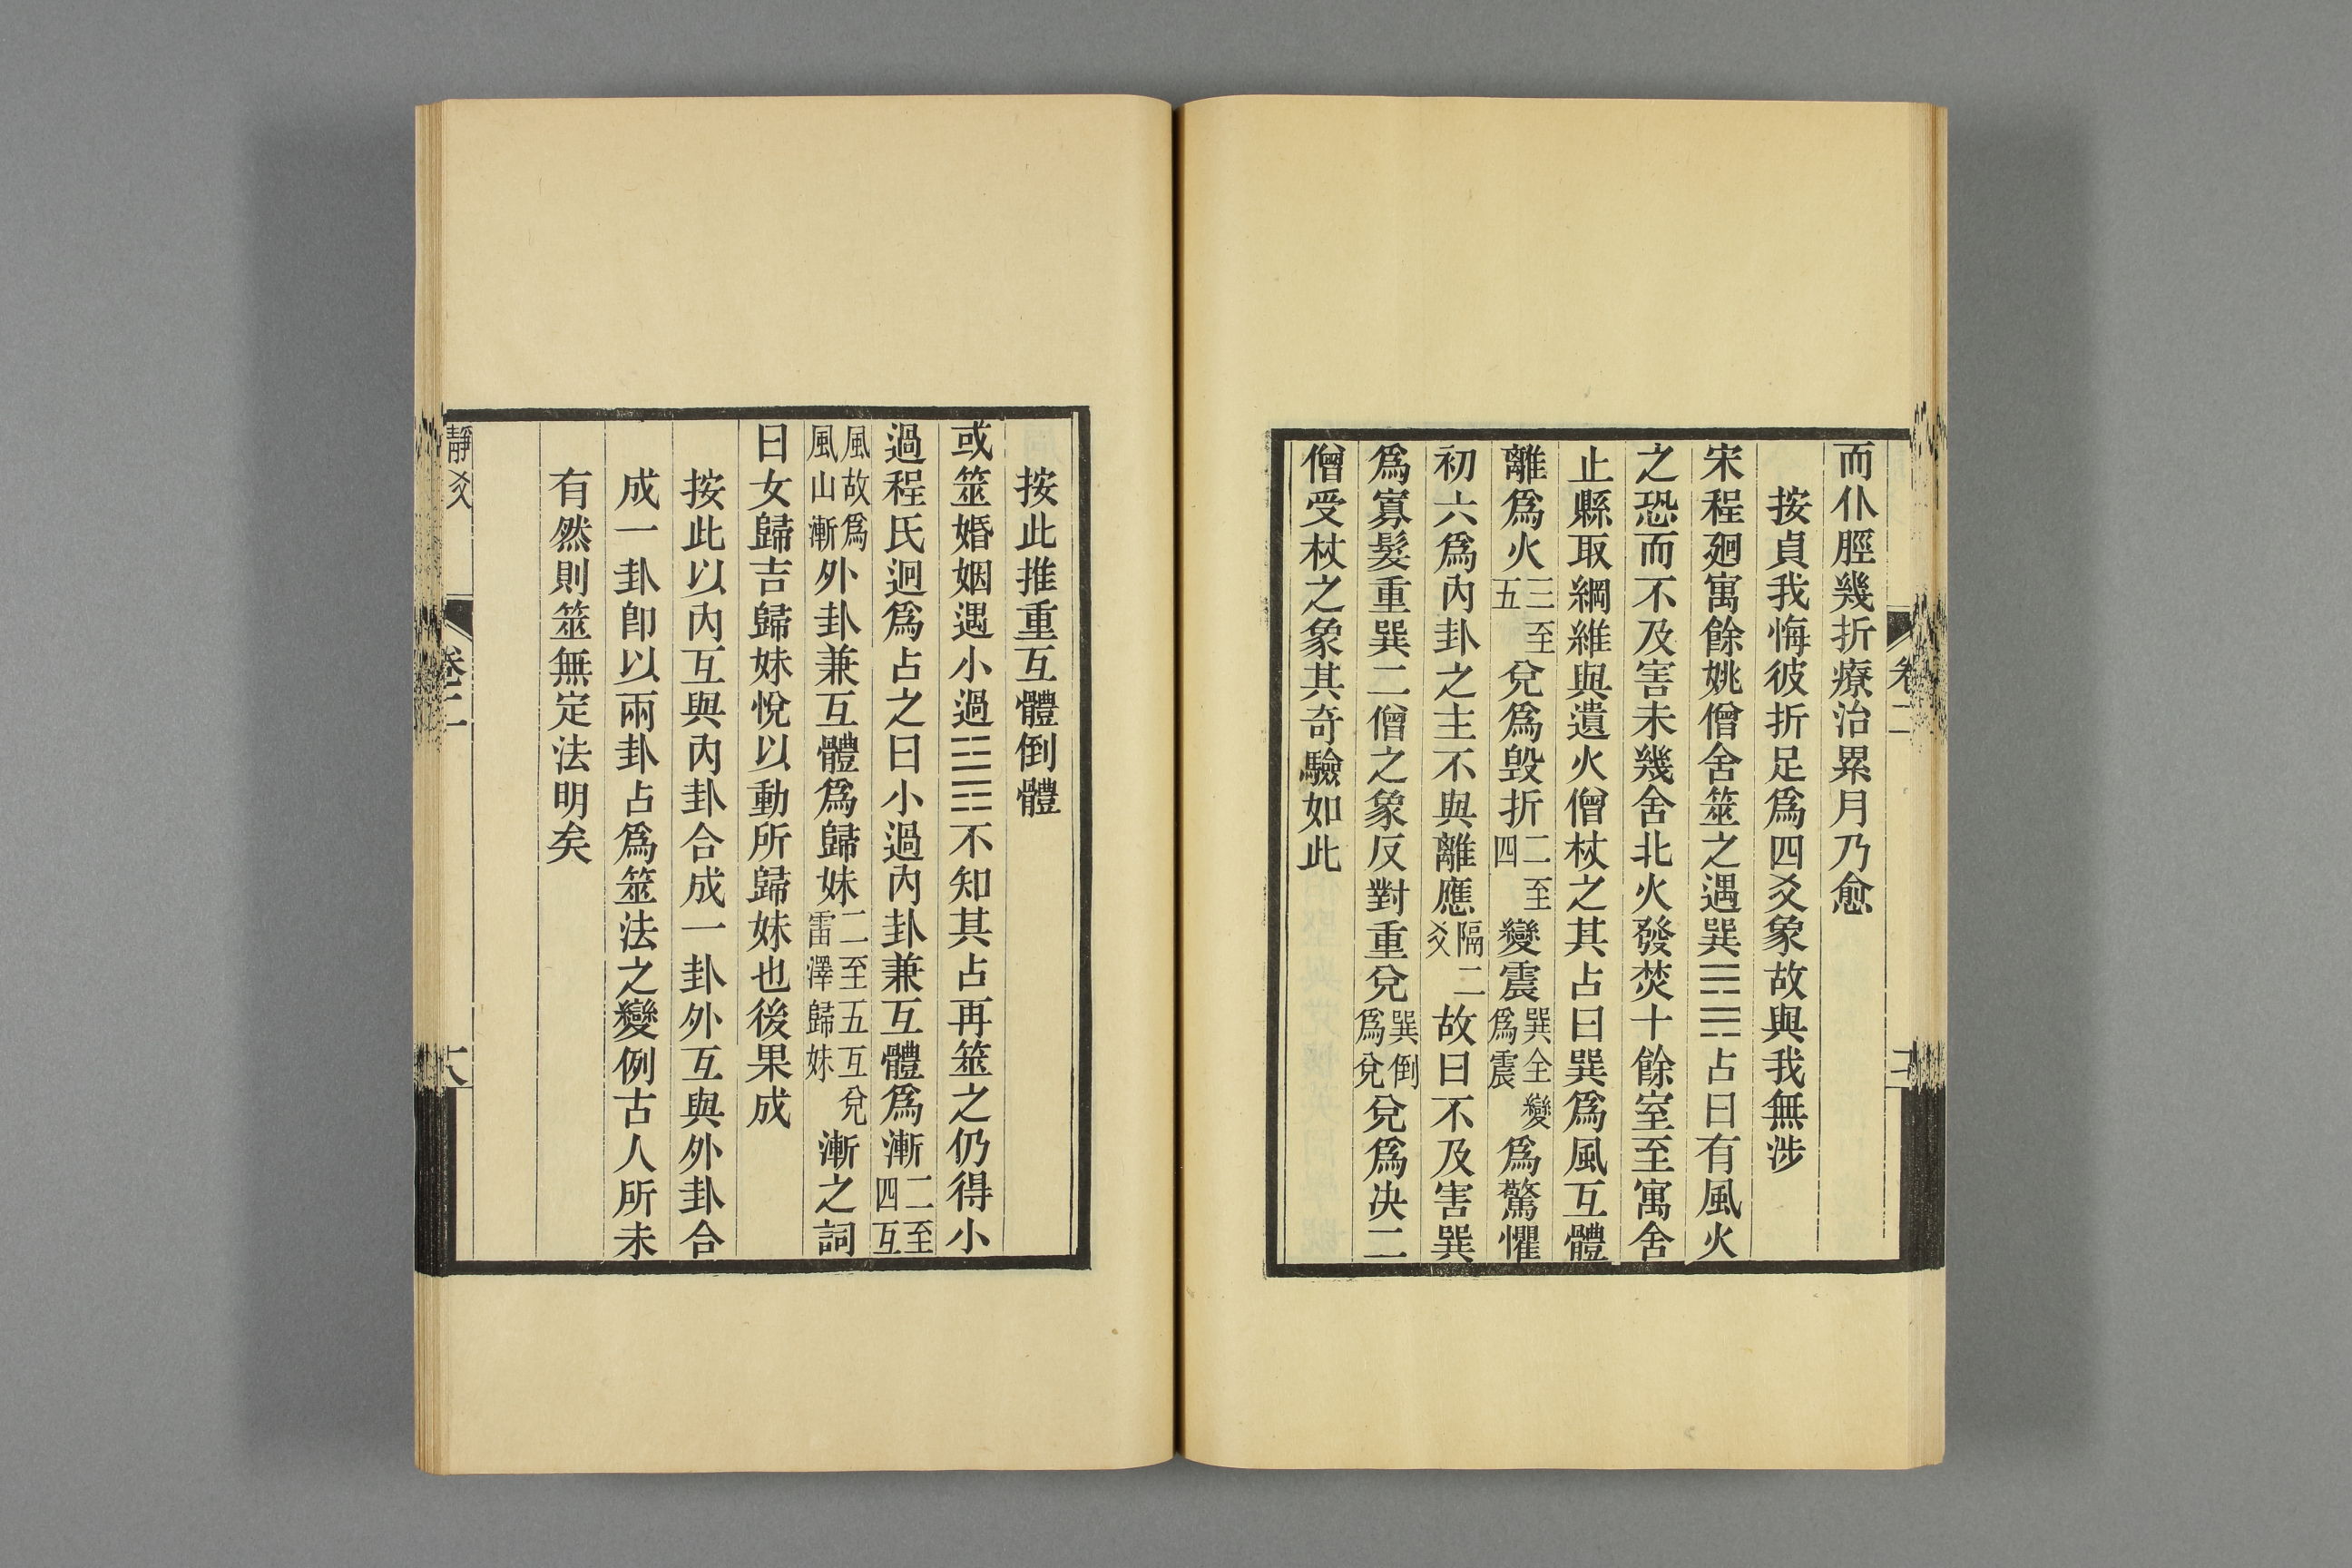 而仆脛幾折療治累月乃愈
按貞我悔彼折足爲四爻象故與我無涉
宋程廻寓餘姚僧舍筮之遇巽☴☴占曰有風火
之恐而不及害未幾舍北火發焚十餘室至寓舍
止縣取綱維與遺火僧杖之其占曰巽爲風互體
離爲火三至五兌爲毁折二至四變震巽全變爲震爲驚懼
初六爲內卦之主不與離應隔二爻故曰不及害巽
爲寡髮重巽二僧之象反對重兌巽倒爲兌兌爲决二
僧受杖之象其奇驗如此
卷二
按此推重互體倒體
或筮婚姻遇小過☳☶不知其占再筮之仍得小
過程氏迥爲占之曰小過內卦兼互體爲漸二至四互
風故爲風山漸外卦兼互體爲歸妹二至五互兌雷澤歸妹漸之詞
曰女歸吉歸妹悅以動所歸妹也後果成
按此以內互與內卦合成一卦外互與外卦合
成一卦卽以兩卦占爲筮法之變例古人所未
有然則筮無定法明矣
靜爻
卷二